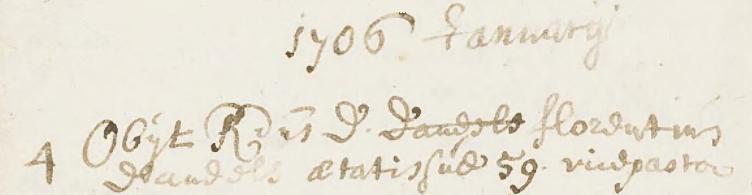 1706 Januarij
4 Obijt R:dus D. Daudels florentius
Daudels ætatis suæ 59. vicepastor